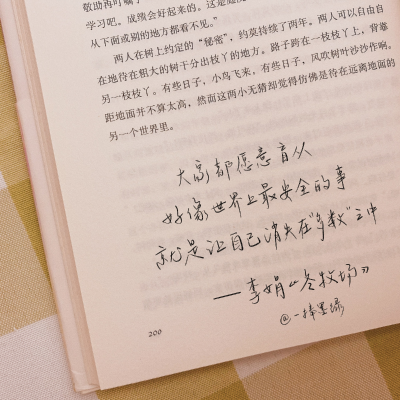 学习吧。成绩会好起来的。
从下面或别的地方都看不见。”
两人在树上约定的“秘密”，约莫持续了两年。两人可以自由自
在地待在粗大的树干分出枝丫的地方。路子跨在一枝枝丫上，背靠
另一枝枝丫。有些日子，小鸟飞来，有些日子，风吹树叶沙沙作响。
距地面并不算太高，然而这两小无猜却觉得仿佛是待在远离地面的
另一个世界里。
大家都愿意盲从
好像世界上最安全的事
就是让自己消失在“多数”之中
——李娟《冬牧场》
@一捧墨绿
200